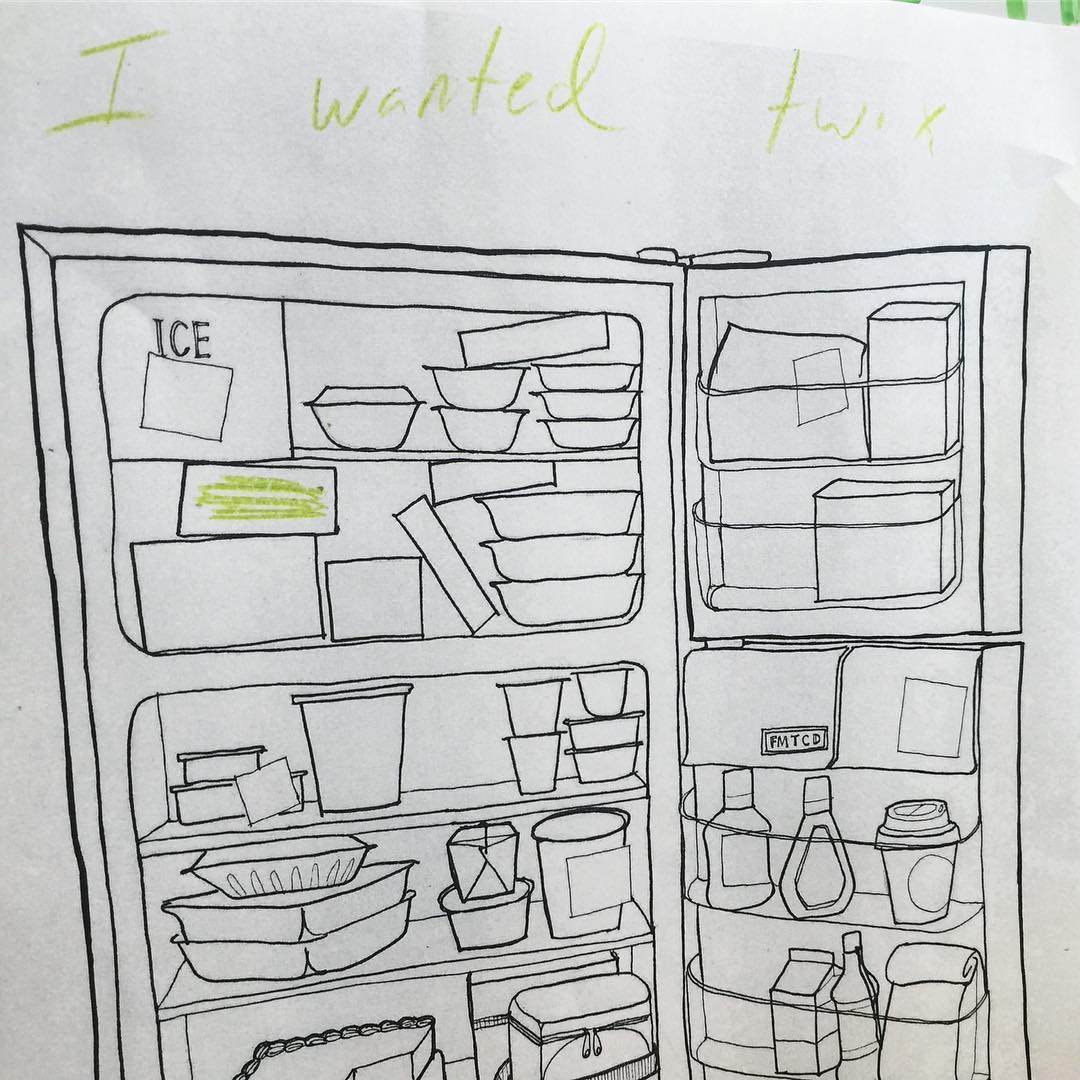 I wanted twix
ICE
FMTCD